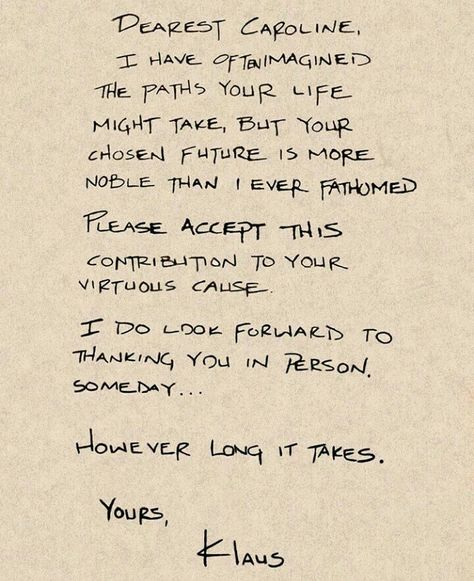 DEAREST CAROLINE,
I HAVE OFTEN IMAGINED
THE PATHS YOUR LIFE
MIGHT TAKE, BUT YOUR
CHOSEN FUTURE IS MORE
NOBLE THAN I EVER FATHOMED
PLEASE ACCEPT THIS
CONTRIBUTION TO YOUR
VIRTUOUS CAUSE.
I DO LOOK FORWARD TO
THANKING YOU IN PERSON.
SOMEDAY...
HOWEVER LONG IT TAKES.
YOURS,
KLAUS